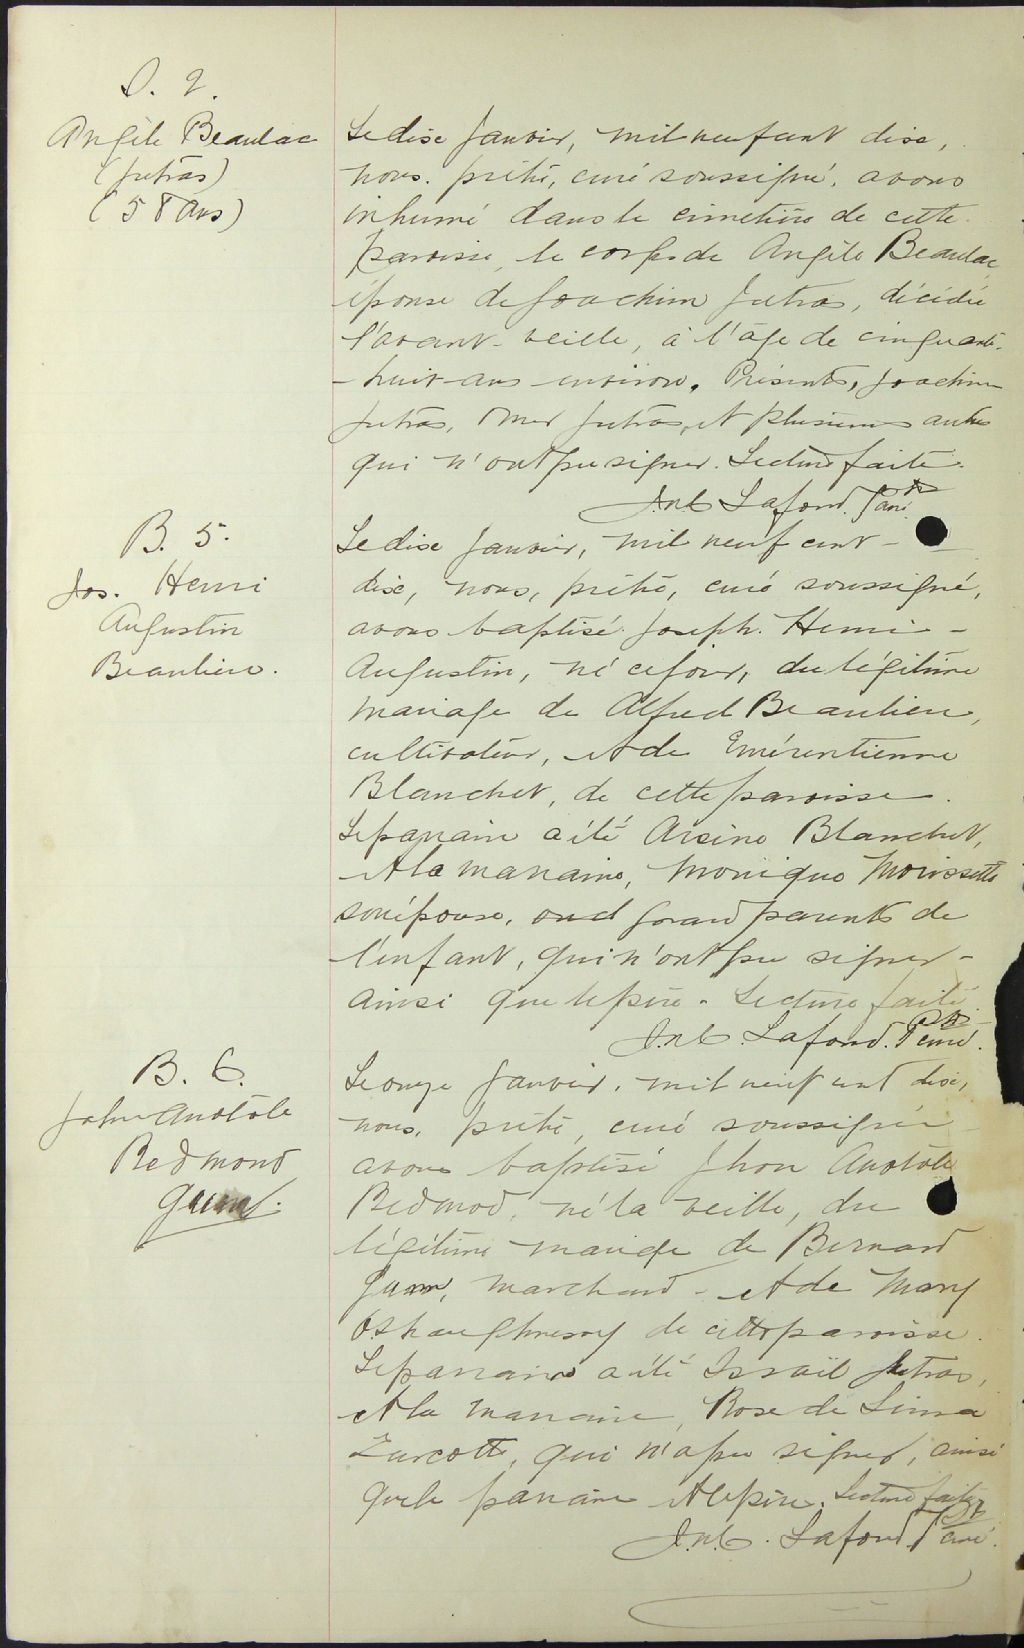 S. 2.
Angèle Beaulac
(Jutras)
(58 ans)
Le dise Janvier, mil neuf cent dise,
nous, prêtre, curé soussigné, avons
inhumé dans le cimetière de cette
paroisse, le corps de Angèle Beaulac,
épouse de Joachim Jutras, décédée
l'avant-veille, à l'âge de cinquante-
-huit ans environ. Présents, Joachim
Jutras, Omer Jutras, et plusieurs autres
qui n'ont pu signer. Lecture faite.
Lafond. Ptre curé
B. 5.
Jos. Henri
Augustin
Beaulieu.
Le dise Janvier, mil neuf cent -
dix, nous, prêtre, curé soussigné,
avons baptisé Joseph Henri -
Augustin, né ce jour, du légitime
mariage de Alfred Beaulieu,
cultivateur, et de Emérentienne
Blanchet, de cette paroisse.
Le parrain a été Arsène Blanchet,
et la marraine, Monique Morissette
son épouse, grand parents de
l'enfant, qui n'ont pu signer -
ainsi que le père. Lecture faite.
Lafond. Ptre curé.
B. 6.
John Anatole
Redmond
Le onze Janvier, mil neuf cent dise,
nous, prêtre, curé soussigné
avons baptisé Jhon Anatole
Redmod, né la veille, du
légitime mariage de Bernard
marchand - et de Mary
OShaughnessy de cette paroisse.
Le parrain a été Israël Jutras,
et la marraine, Rose de Lima
Turcotte, qui n'a pu signer, ainsi
que le parrain et le père. Lecture faite
Lafond Ptre curé.